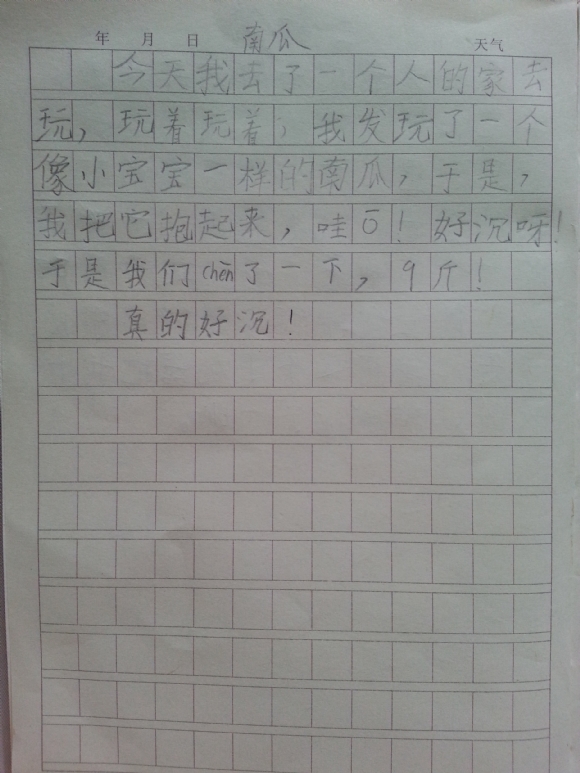 年 月 日 南瓜 天气
今天我去了一个人的家去
玩，玩着玩着，我发玩了一个
像小宝宝一样的南瓜，于是，
我把它抱起来，哇ō！好沉呀！
于是我们chēn了一下，9斤！
真的好沉！